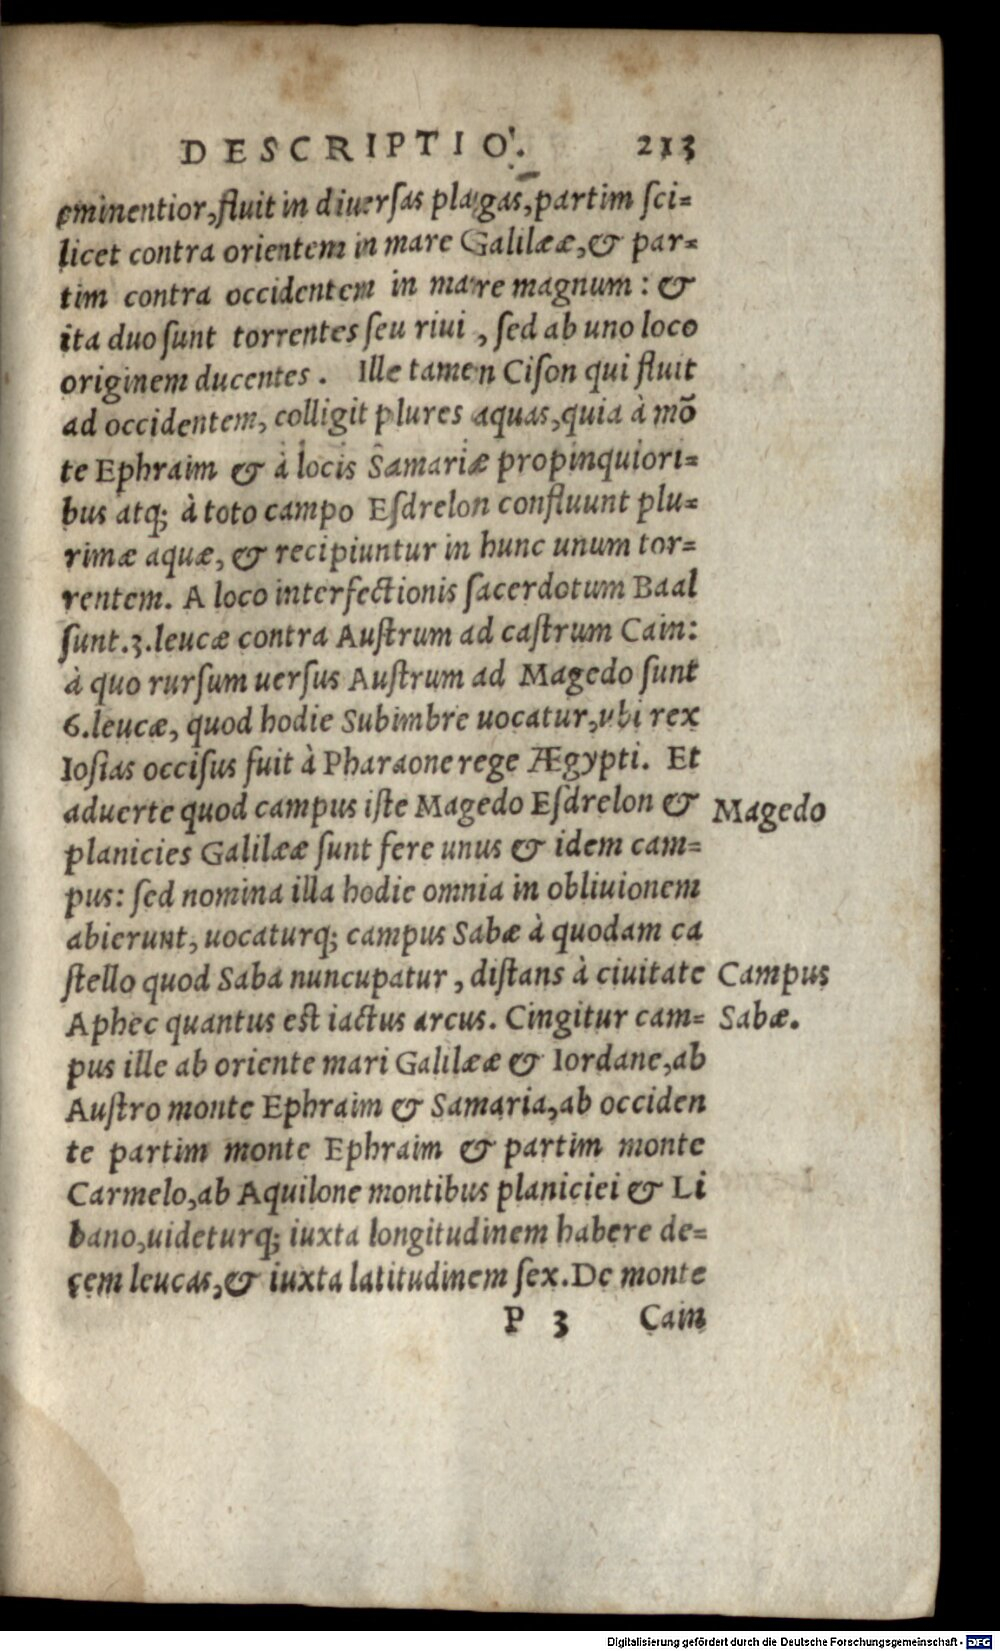 DESCRIPTIO. 213
eminentior, fluit in diuersas plagas, partim sci-
licet contra orientem in mare Galilææ, & par-
tim contra occidentem in mare magnum: &
ita duo sunt torrentes seu riui, sed ab uno loco
originem ducentes. Ille tamen Cison qui fluit
ad occidentem, colligit plures aquas, quia à mõ
te Ephraim & à locis Samariæ propinquiori-
bus atq; à toto campo Esdrelon confluunt plu-
rimæ aquæ, & recipiuntur in hunc unum tor-
rentem. A loco interfectionis sacerdotum Baal
sunt .3. leucæ contra Austrum ad castrum Cain:
à quo rursum uersus Austrum ad Magedo sunt
6. leucæ, quod hodie Subimbre uocatur, vbi rex
Iosias occisus fuit à Pharaone rege Ægypti. Et
aduerte quod campus iste Magedo Esdrelon &
Magedo
planicies Galilææ sunt fere unus & idem cam-
pus: sed nomina illa hodie omnia in obliuionem
abierunt, uocaturq; campus Sabæ à quodam ca
stello quod Saba nuncupatur, distans à ciuitate
Campus
Aphec quantus est iactus arcus. Cingitur cam-
Sabæ.
pus ille ab oriente mari Galilææ & Iordane, ab
Austro monte Ephraim & Samaria, ab occiden
te partim monte Ephraim & partim monte
Carmelo, ab Aquilone montibus planiciei & Li
bano, uideturq; iuxta longitudinem habere de-
cem leucas, & iuxta latitudinem sex. De monte
P 3 Cain
Digitalisierung gefördert durch die Deutsche Forschungsgemeinschaft - DFG